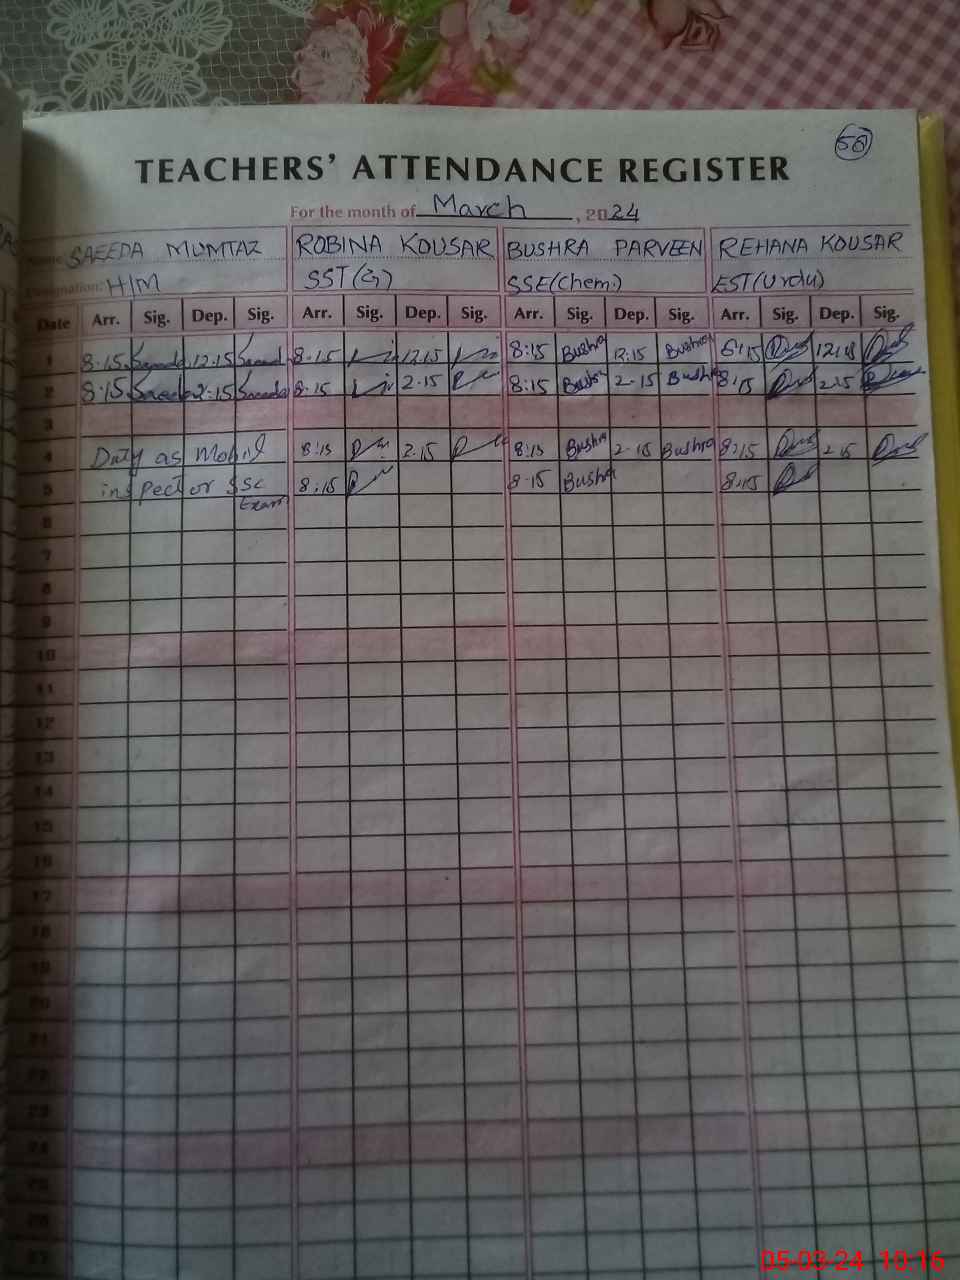 56
TEACHERS' ATTENDANCE REGISTER
For the month of March, 2024
Name: SAEEDA MUMTAZ ROBINA KOUSAR BUSHRA PARVEEN REHANA KOUSAR
Designation: H/M SST(G) SSE(Chem.) EST(Urdu)
Date Arr. Sig. Dep. Sig. Arr. Sig. Dep. Sig. Arr. Sig. Dep. Sig. Arr. Sig. Dep. Sig.
1 8:15 Saeeda 12:15 Saeeda 8:15 12:15 8:15 Bushra 12:15 Bushra
2 8:15 Saeeda 2:15 Saeeda 8:15 2.15 8:15 Bushra 2-15 Bushra 8:15 2:15
3
4 Duty as Mobil 8:15 2:15 8:15 Bushra 2-15 Bushra 8:15 2-15
5 inspector SSC Exam 8:15 8-15 Bushra 8:15
6
7
8
9
10
11
12
13
14
15
16
17
18
19
20
21
22
23
24
25
26
27
05-03-24 10:16